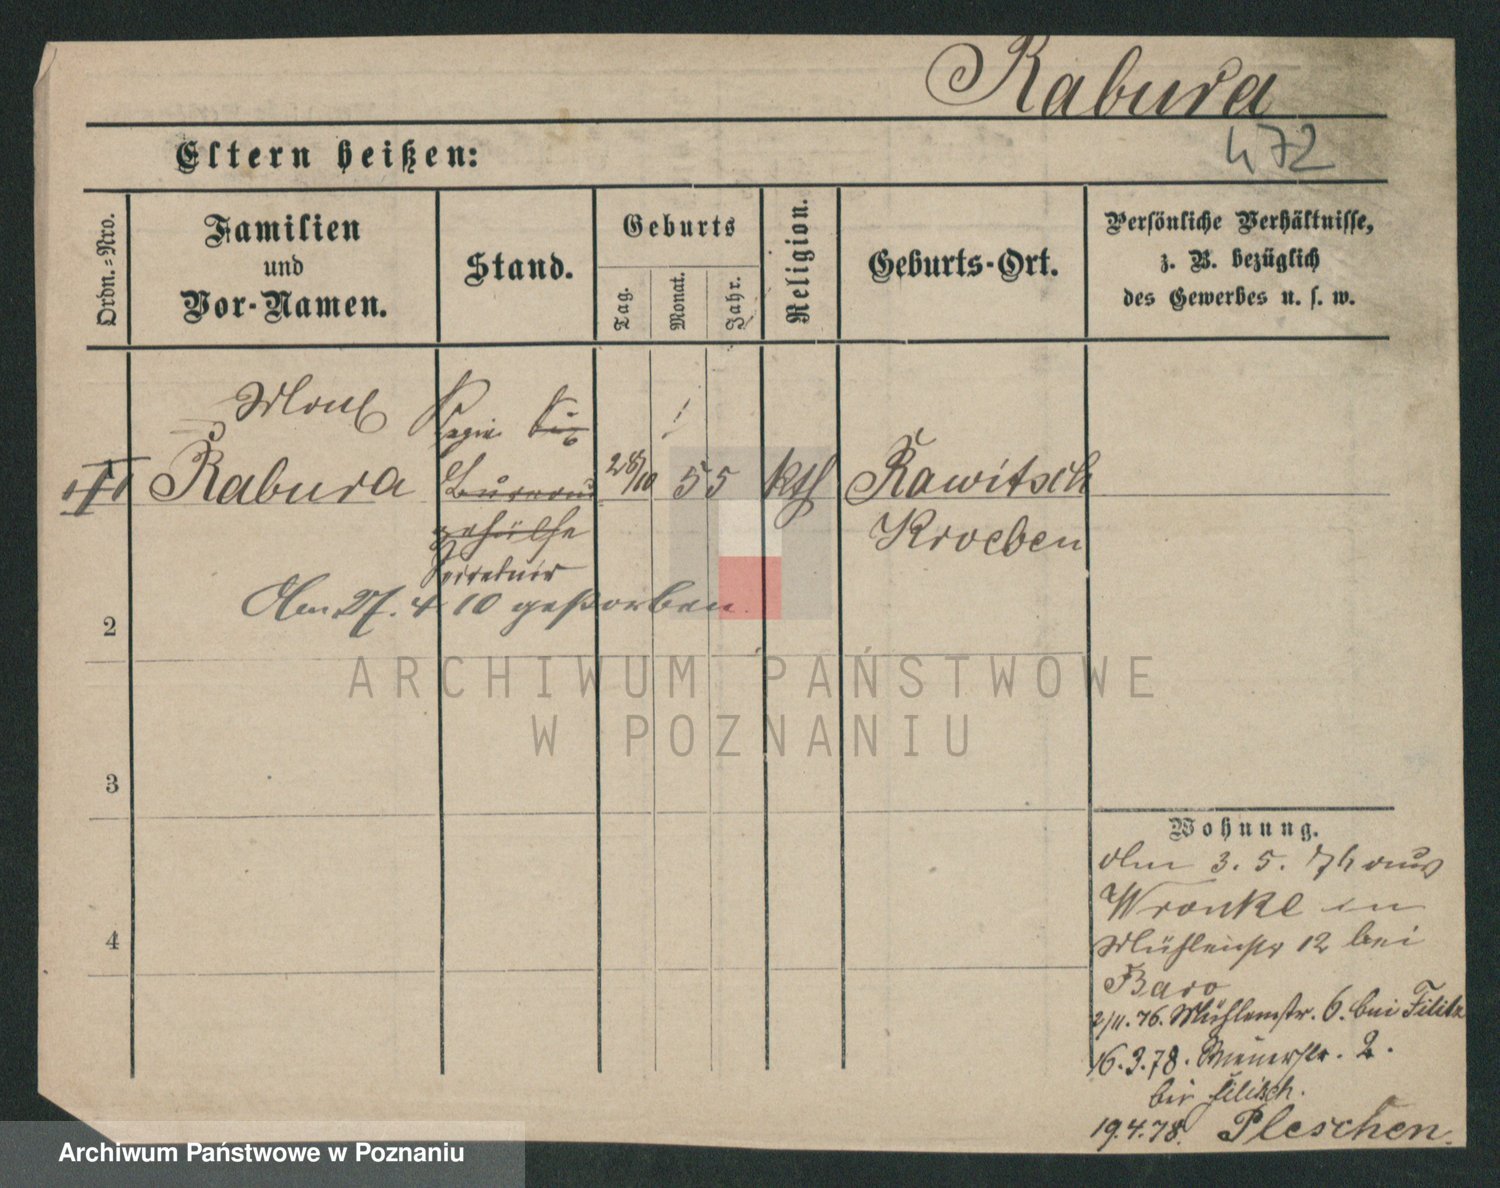 Rabura
472
Eltern heißen:
Ordn.=Nro.
Familien
und
Vor-Namen.
Stand.
Geburts
Tag.
Monat.
Jahr.
Religion.
Geburts-Ort.
Persönliche Verhältnisse,
z. B. bezüglich
des Gewerbes u. s. w.
Rabura
28/10 55 kth Rawitsch
gehülfe
Kroeben
Am 27. 4 10 gestorben.
2
3
4
Wohnung.
Am 3. 5. 74 aus
Wronke in
Mühlenstr 12 bei
Baro
2/11. 76. Mühlenstr. 6. bei Filitz
16.3.78. 2.
bei
19.4.78. Pleschen.
ARCHIWUM PAŃSTWOWE
W POZNANIU
Archiwum Państwowe w Poznaniu